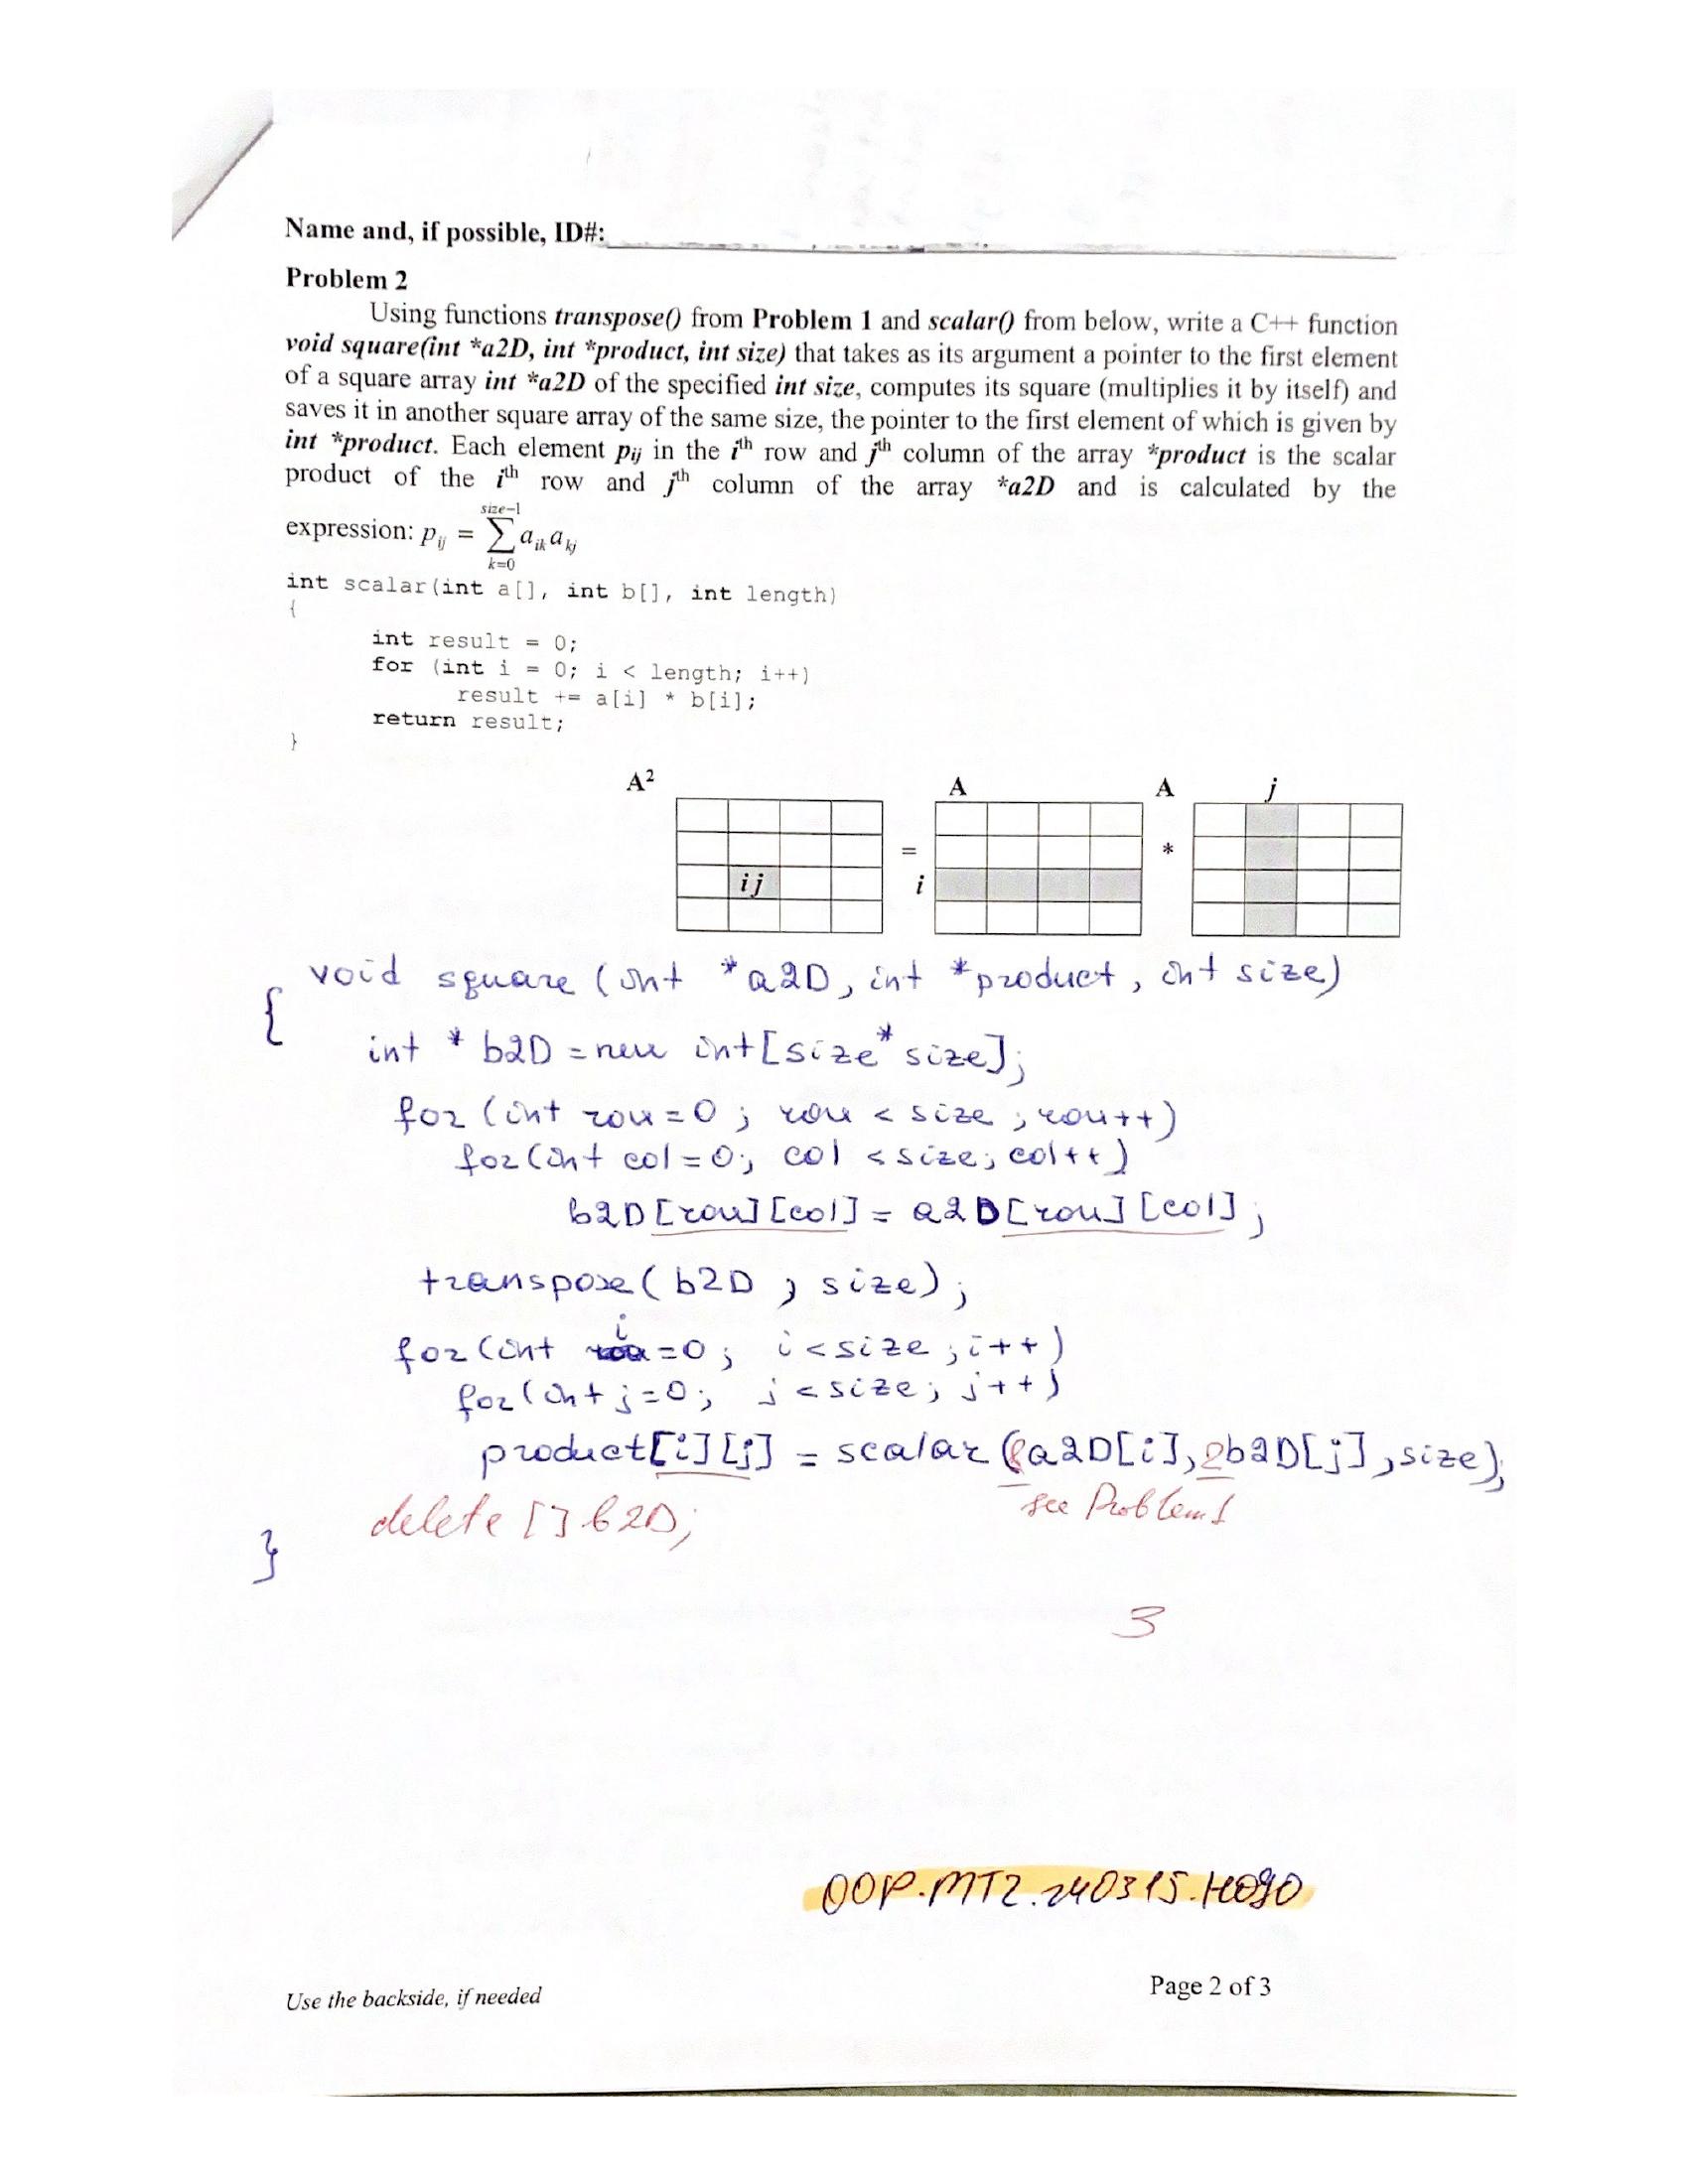 Name and, if possible, ID#:
Problem 2
Using functions transpose() from Problem 1 and scalar() from below, write a C++ function
void square(int *a2D, int *product, int size) that takes as its argument a pointer to the first element
of a square array int *a2D of the specified int size, computes its square (multiplies it by itself) and
saves it in another square array of the same size, the pointer to the first element of which is given by
int *product. Each element pij in the ith row and jth column of the array *product is the scalar
product of the ith row and jth column of the array *a2D and is calculated by the
expression: pij = ∑ (k=0, size-1) aik akj
int scalar(int a[], int b[], int length)
{
int result = 0;
for (int i = 0; i < length; i++)
result += a[i] * b[i];
return result;
}
A² A A j
= *
ij i
void square (int *a2D, int *product, int size)
{
int * b2D = new int[size*size];
for (int row=0; row < size; row++)
for(int col=0; col <size; col++)
b2D[row][col] = a2D[row][col];
transpose(b2D, size);
for(int i=0; i<size; i++)
for(int j=0; j<size; j++)
product[i][j] = scalar (&a2D[i], &b2D[j], size);
see Problem 1
delete [] b2D;
}
3
OOP.MT2.240315.H090
Use the backside, if needed
Page 2 of 3